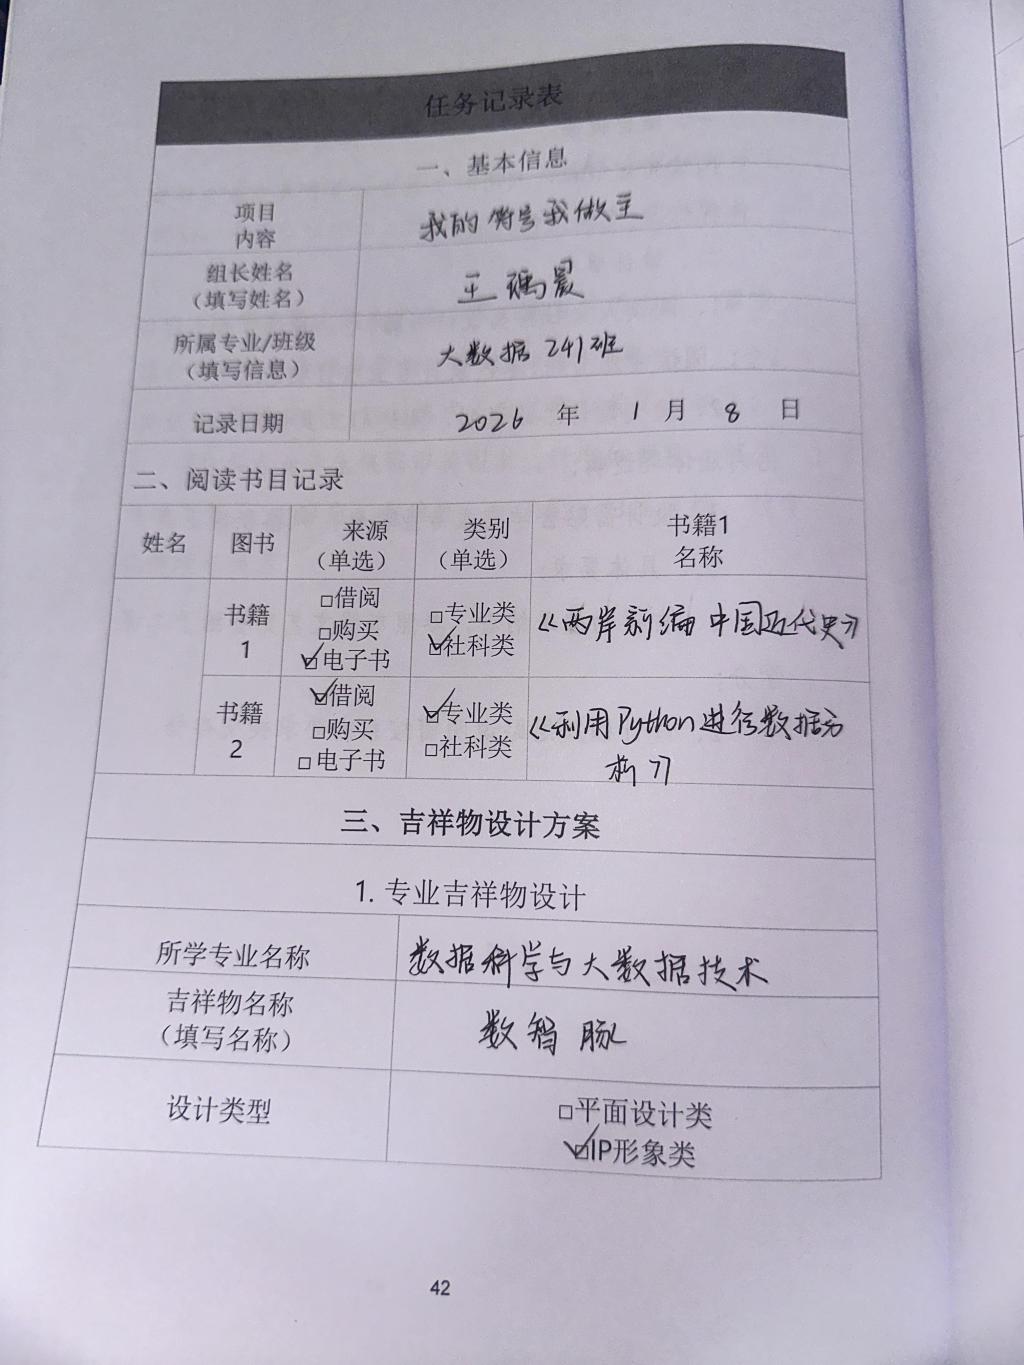 任务记录表
一、基本信息
项目
内容
我的符号我做主
组长姓名
（填写姓名）
王瑀晨
所属专业/班级
（填写信息）
大数据241班
记录日期
2026 年 1 月 8 日
二、阅读书目记录
姓名 图书
来源
（单选）
类别
（单选）
书籍1
名称
书籍
1
□借阅
□购买
☑电子书
□专业类
☑社科类
《两岸新编中国近代史》
书籍
2
☑借阅
□购买
□电子书
☑专业类
□社科类
《利用Python进行数据分
析》
三、吉祥物设计方案
1. 专业吉祥物设计
所学专业名称
数据科学与大数据技术
吉祥物名称
（填写名称）
数智脉
设计类型
□平面设计类
☑IP形象类
42